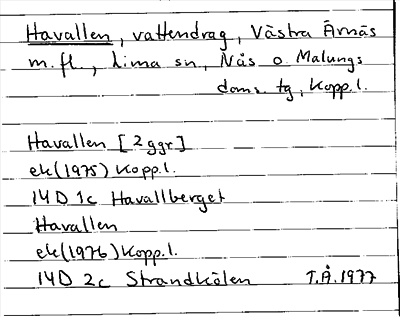 Havallen, vattendrag, Västra Ärnäs
m.fl., Lima sn, Nås o. Malungs
doms. tg, Kopp.l.
Havallen [2 ggr]
ek(1975) Kopp.l.
14D 1c Havallberget
Havallen
ek(1976) Kopp.l.
14D 2c Strandkölen T.Å.1977